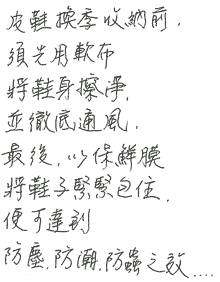 皮鞋換季收納前，
須先用軟布
將鞋身擦淨，
並徹底通風，
最後，以保鮮膜
將鞋子緊緊包住，
便可達到
防塵，防潮，防蟲之效....